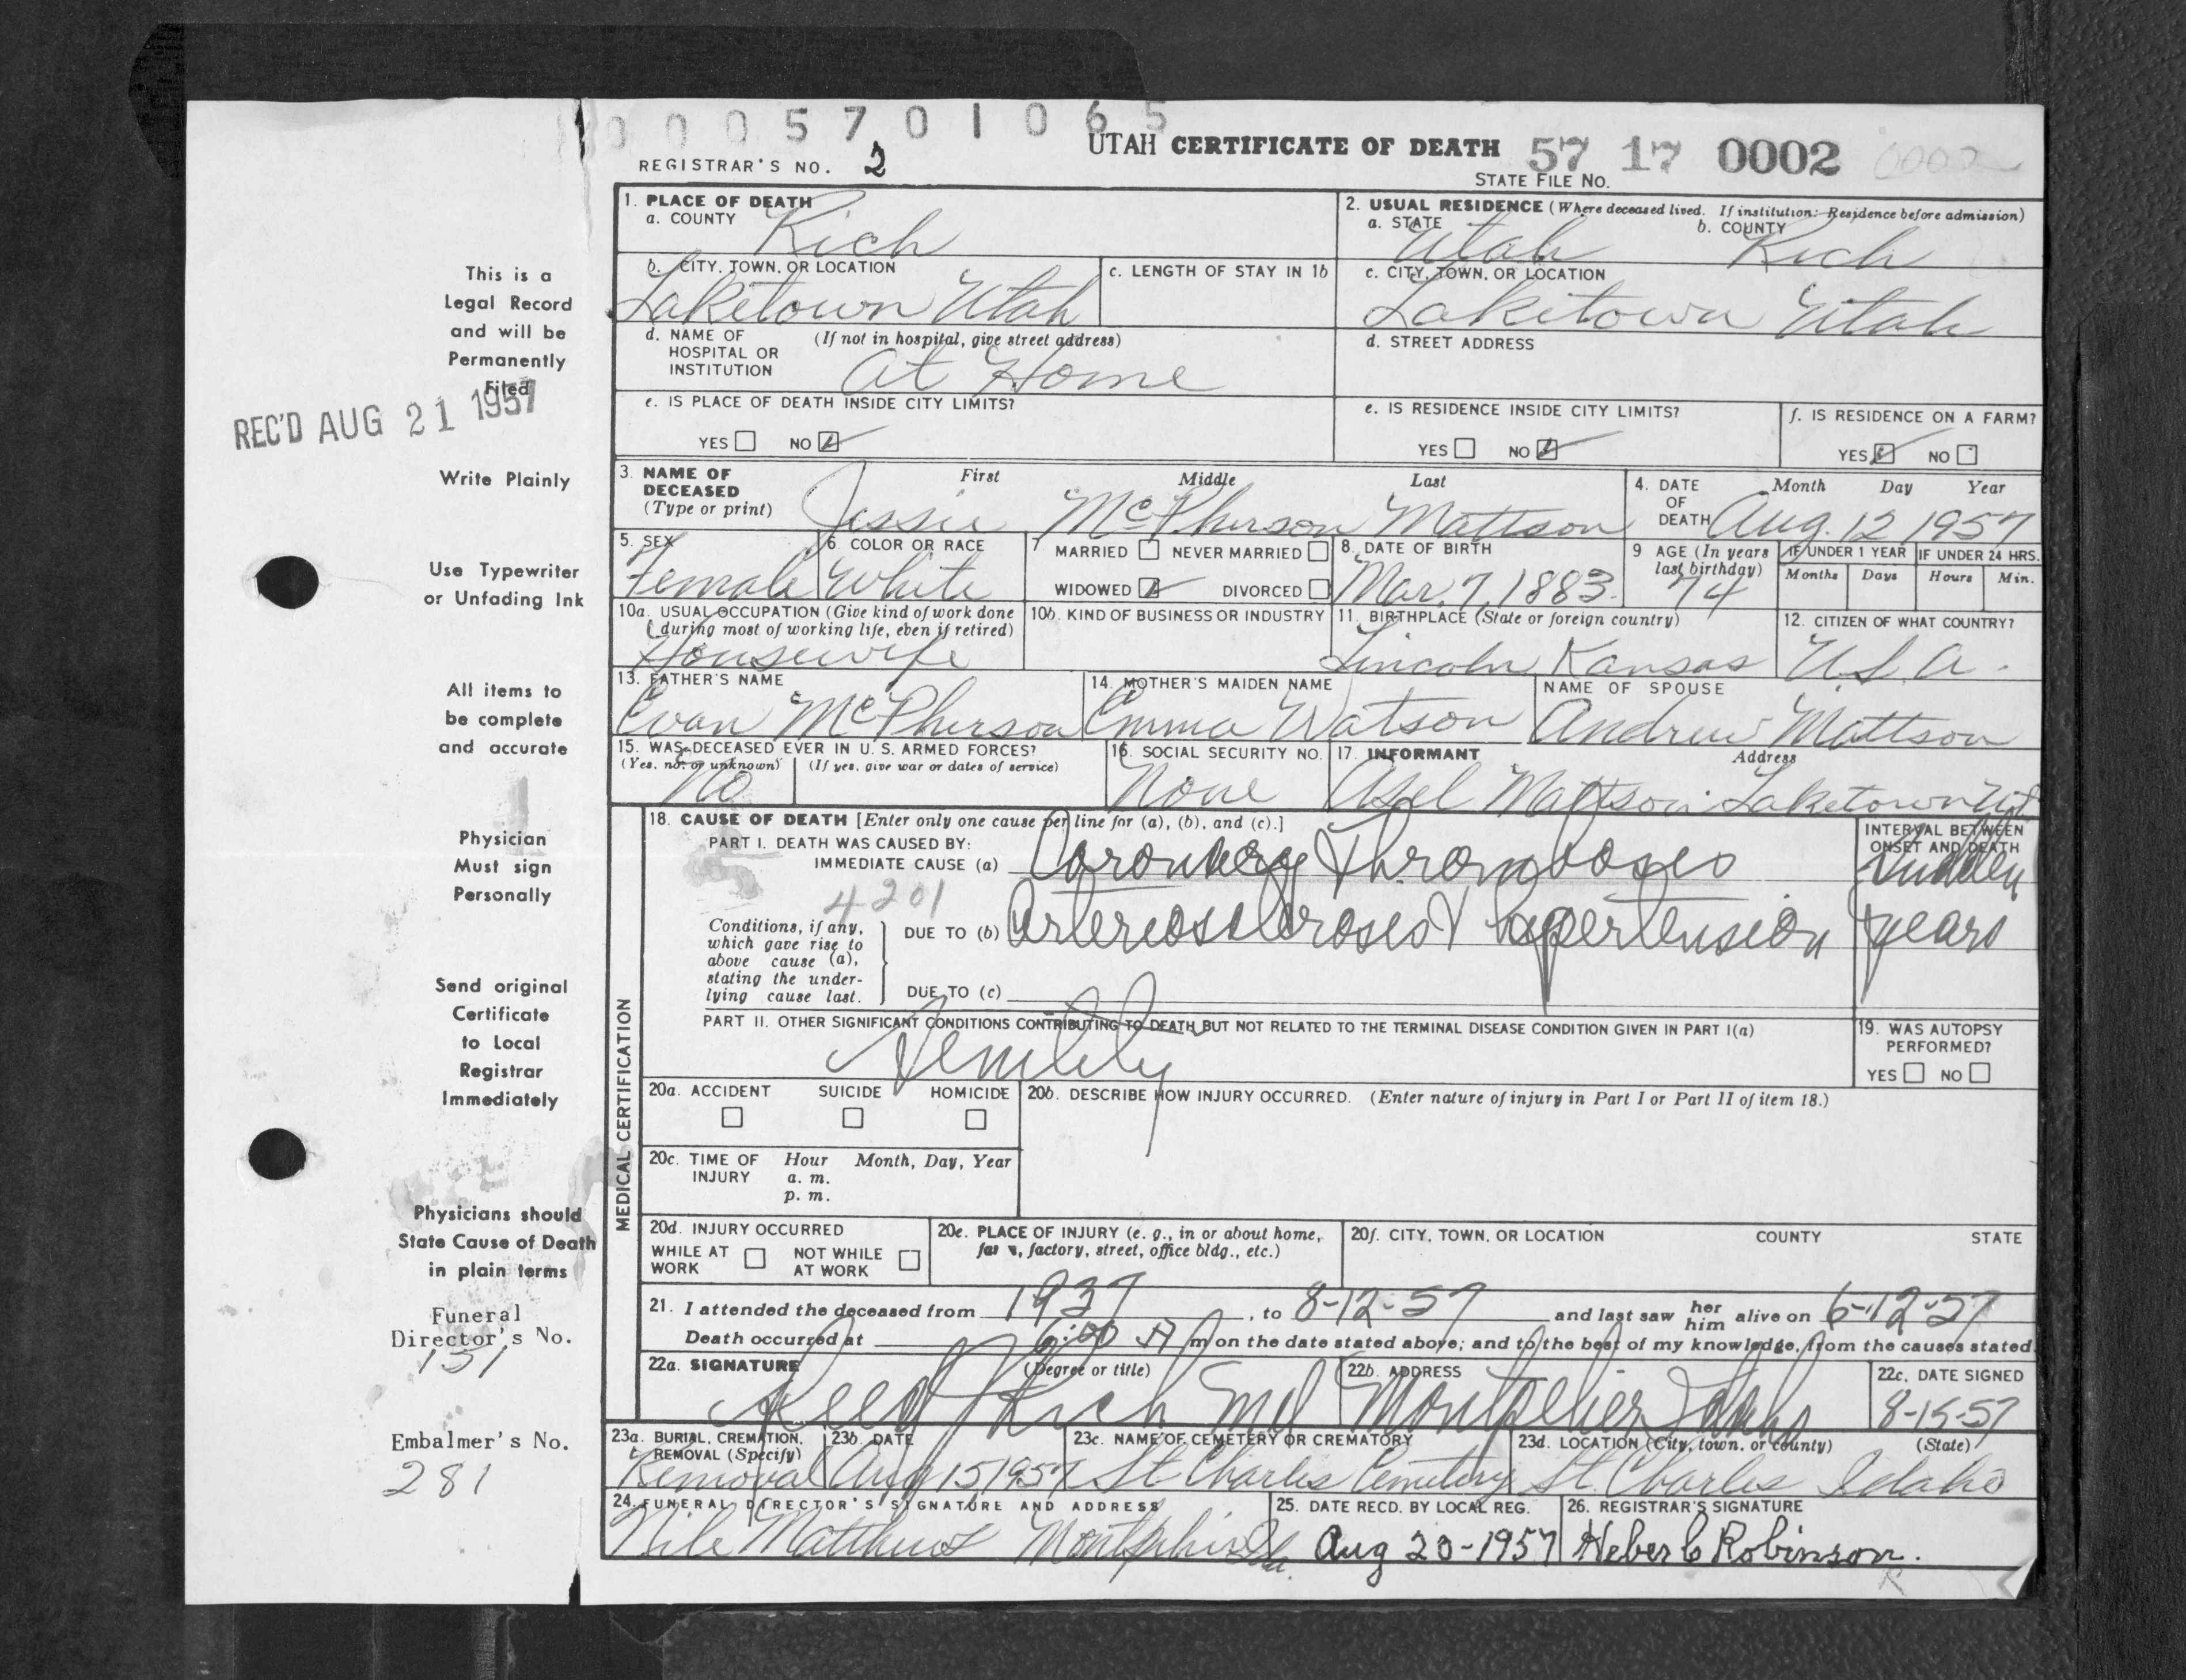 0005701065
UTAH CERTIFICATE OF DEATH 57 17 0002 0002
REGISTRAR'S NO. 2
STATE FILE NO.
1. PLACE OF DEATH
a. COUNTY Rich
2. USUAL RESIDENCE (Where deceased lived. If institution: Residence before admission)
a. STATE Utah b. COUNTY Rich
b. CITY, TOWN, OR LOCATION Laketown Utah
c. LENGTH OF STAY IN 1b
c. CITY, TOWN, OR LOCATION Laketown Utah
d. NAME OF HOSPITAL OR INSTITUTION (If not in hospital, give street address) At Home
d. STREET ADDRESS
e. IS PLACE OF DEATH INSIDE CITY LIMITS?
YES NO
e. IS RESIDENCE INSIDE CITY LIMITS?
YES NO
f. IS RESIDENCE ON A FARM?
YES NO
3. NAME OF DECEASED (Type or print) First Middle Last
Jessie McPherson Mattson
4. DATE OF DEATH Month Day Year
Aug. 12 1957
5. SEX Female
6 COLOR OR RACE White
7 MARRIED NEVER MARRIED
WIDOWED DIVORCED
8. DATE OF BIRTH Mar. 7, 1883.
9 AGE (In years last birthday) 74
IF UNDER 1 YEAR Months Days
IF UNDER 24 HRS. Hours Min.
10a. USUAL OCCUPATION (Give kind of work done during most of working life, even if retired)
Housewife
10b. KIND OF BUSINESS OR INDUSTRY
11. BIRTHPLACE (State or foreign country)
Lincoln Kansas
12. CITIZEN OF WHAT COUNTRY?
U.S.A.
13. FATHER'S NAME
Evan McPherson
14. MOTHER'S MAIDEN NAME
Emma Watson
NAME OF SPOUSE
Andrew Mattson
15. WAS DECEASED EVER IN U.S. ARMED FORCES?
(Yes, no, or unknown) (If yes, give war or dates of service)
No
16. SOCIAL SECURITY NO.
None
17. INFORMANT Address
Asel Mattson Laketown Ut
MEDICAL CERTIFICATION
18. CAUSE OF DEATH [Enter only one cause per line for (a), (b), and (c).]
PART I. DEATH WAS CAUSED BY:
IMMEDIATE CAUSE (a) Coronary Thromboses
INTERVAL BETWEEN ONSET AND DEATH
Sudden
4201
Conditions, if any, which gave rise to above cause (a), stating the underlying cause last.
DUE TO (b) Arterioscleroses & hypertension years
DUE TO (c)
PART II. OTHER SIGNIFICANT CONDITIONS CONTRIBUTING TO DEATH BUT NOT RELATED TO THE TERMINAL DISEASE CONDITION GIVEN IN PART I(a)
Senility
19. WAS AUTOPSY PERFORMED?
YES NO
20a. ACCIDENT SUICIDE HOMICIDE
20b. DESCRIBE HOW INJURY OCCURRED. (Enter nature of injury in Part I or Part II of item 18.)
20c. TIME OF INJURY Hour Month, Day, Year
a. m.
p. m.
20d. INJURY OCCURRED
WHILE AT WORK NOT WHILE AT WORK
20e. PLACE OF INJURY (e. g., in or about home, farm, factory, street, office bldg., etc.)
20f. CITY, TOWN, OR LOCATION COUNTY STATE
21. I attended the deceased from 1937, to 8-12-57 and last saw her him alive on 6-12-57
Death occurred at 6:00 A m on the date stated above; and to the best of my knowledge, from the causes stated.
22a. SIGNATURE (Degree or title)
Reed J Rich Md
22b. ADDRESS
Montpelier Idaho
22c. DATE SIGNED
8-15-57
23a. BURIAL, CREMATION, REMOVAL (Specify)
Removal
23b. DATE
Aug 15 1957
23c. NAME OF CEMETERY OR CREMATORY
St Charles Cemetery
23d. LOCATION (City, town, or county) (State)
St. Charles Idaho
24. FUNERAL DIRECTOR'S SIGNATURE AND ADDRESS
Nile Matthews Montpelier Ida.
25. DATE RECD. BY LOCAL REG.
Aug 20-1957
26. REGISTRAR'S SIGNATURE
Heber C Robinson.
This is a
Legal Record
and will be
Permanently
Filed
REC'D AUG 21 1957
Write Plainly
Use Typewriter
or Unfading Ink
All items to
be complete
and accurate
Physician
Must sign
Personally
Send original
Certificate
to Local
Registrar
Immediately
Physicians should
State Cause of Death
in plain terms
Funeral
Director's No.
151
Embalmer's No.
281